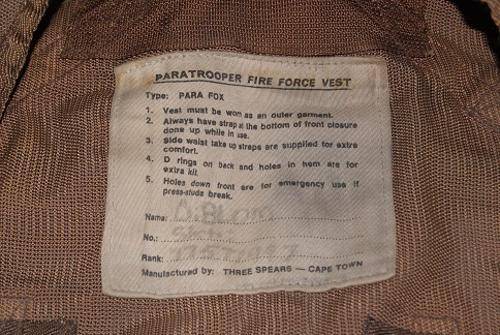 PARATROOPER FIRE FORCE VEST
Type: PARA FOX
1. Vest must be worn as an outer garment.
2. Always have strap at the bottom of front closure
done up while in use.
3. Side waist take up straps are supplied for extra
comfort.
4. D rings on back and holes in hem are for
extra kit.
5. Holes down front are for emergency use if
press-studs break.
Name:
No.:
Rank:
Manufactured by: THREE SPEARS — CAPE TOWN